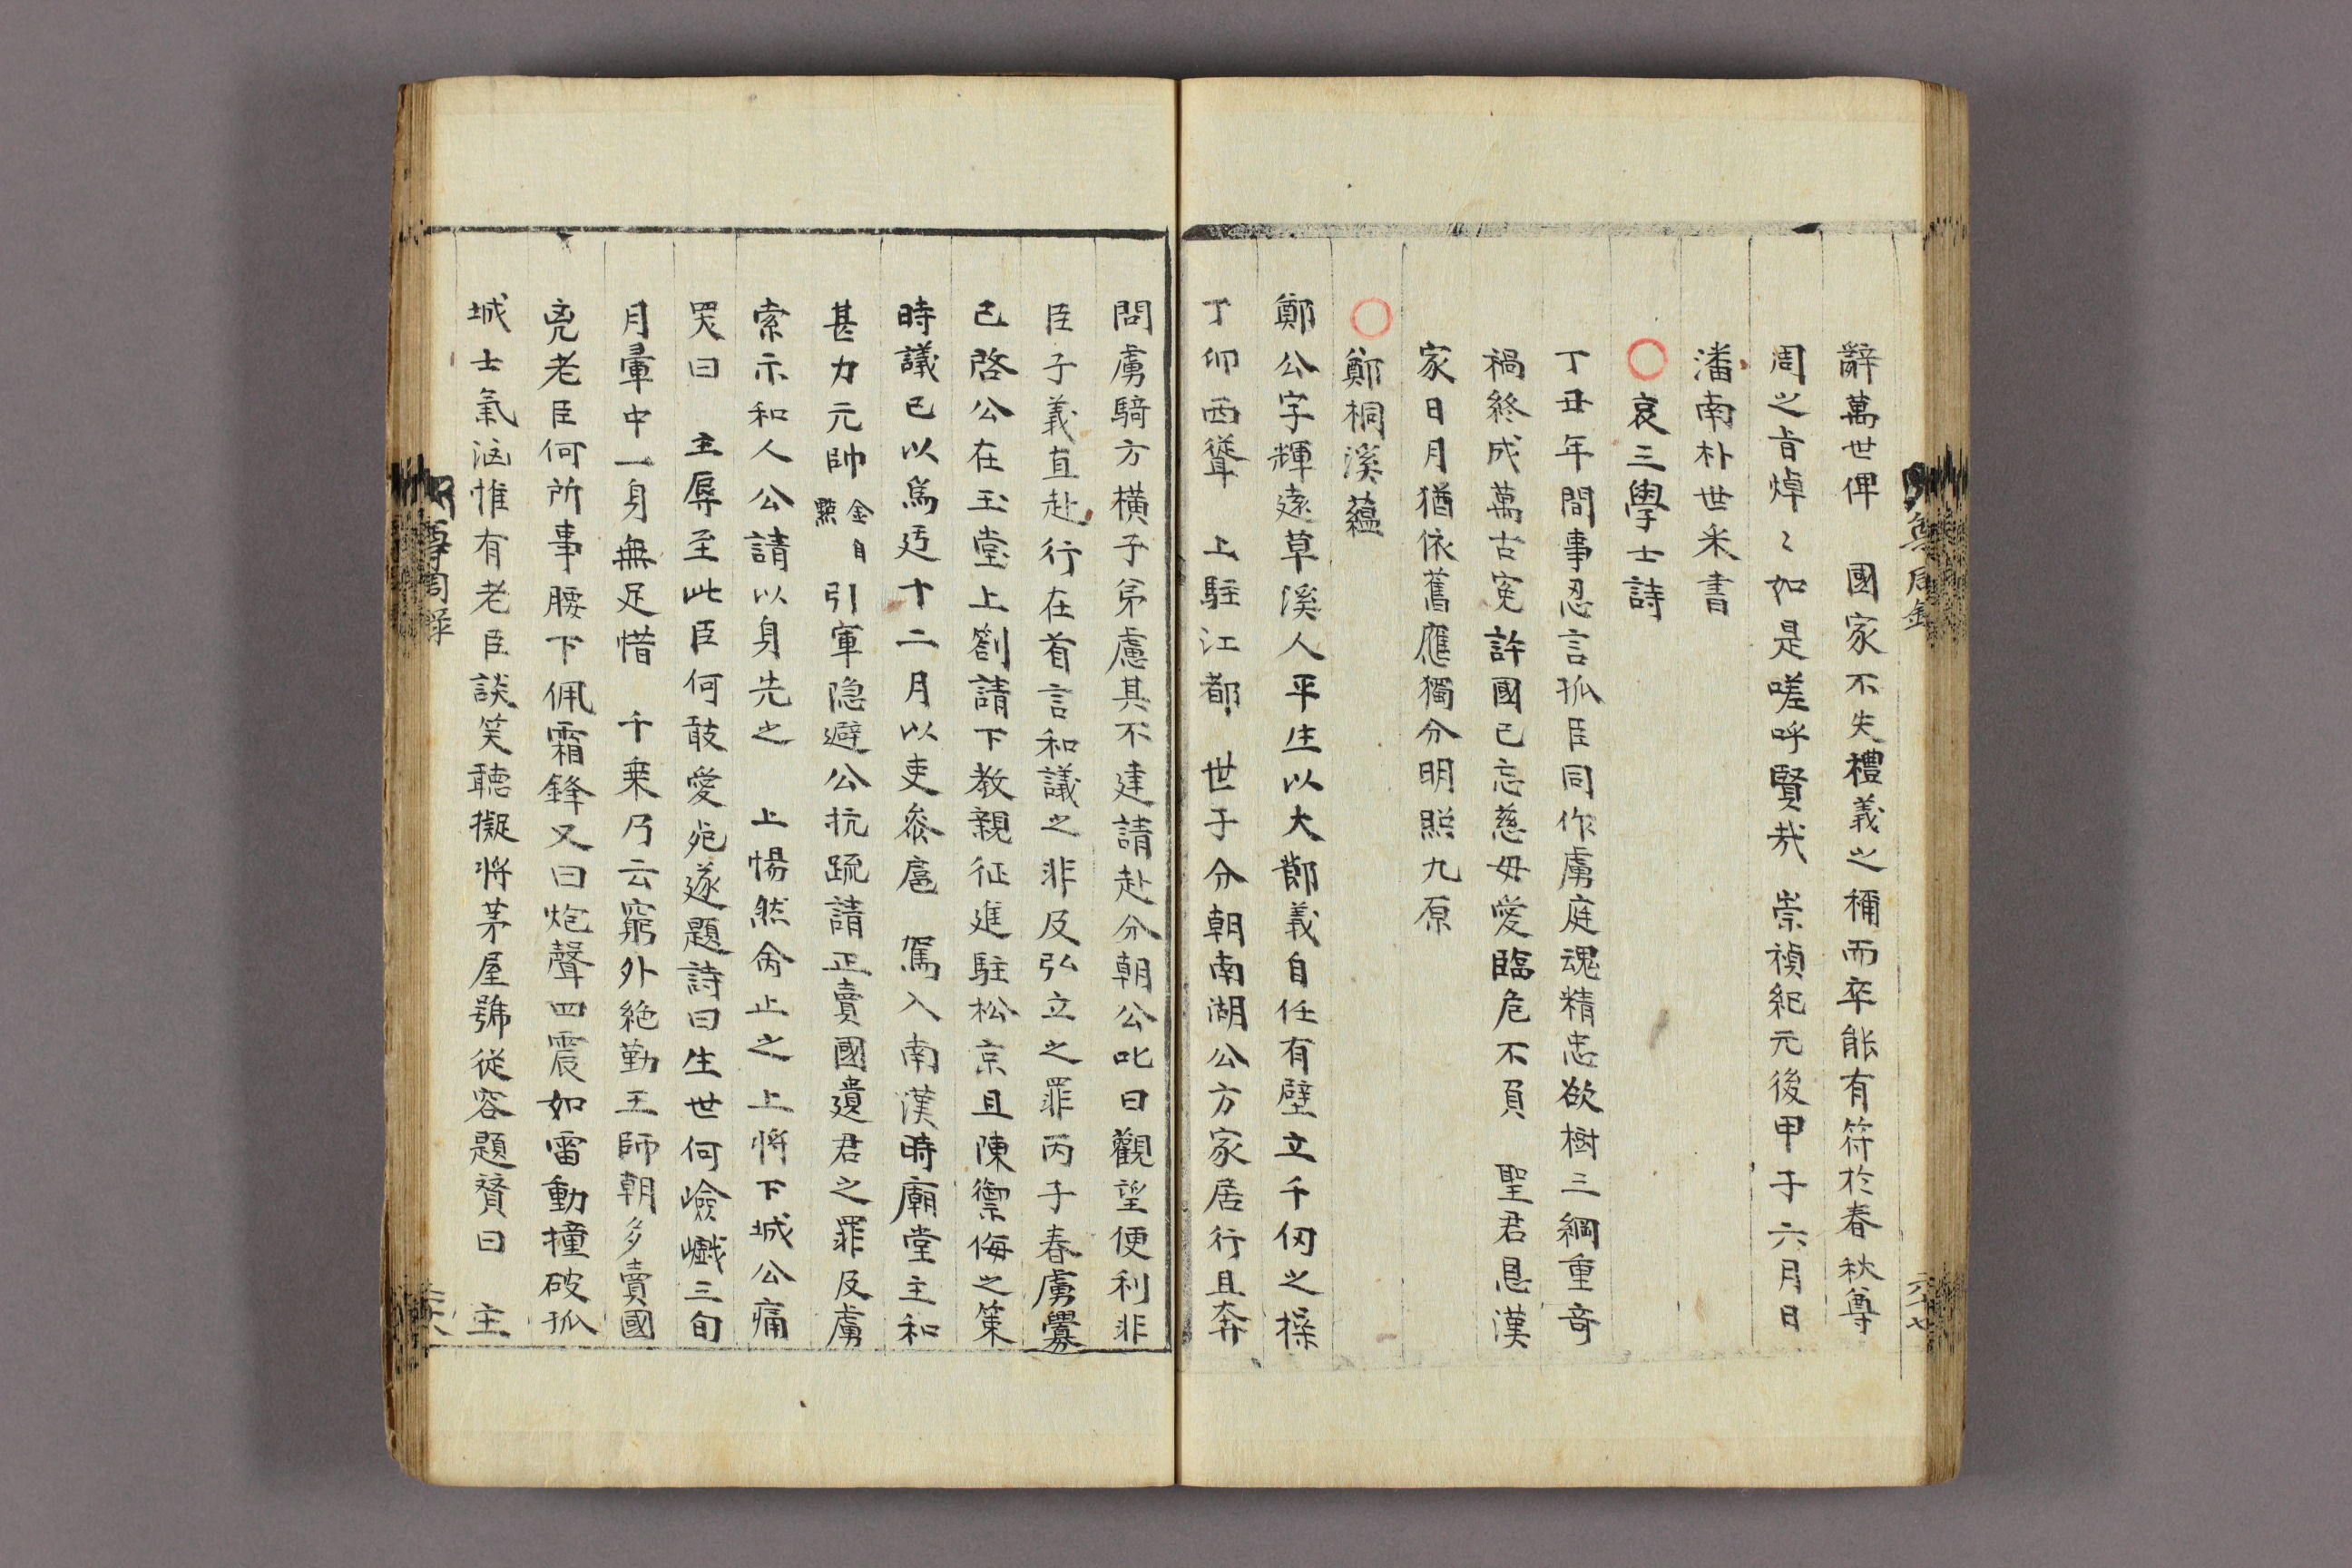 辭萬世俾 國家不失禮義之稱而卒能有符於春秋尊
周之旨焯〻如是嗟呼賢哉 崇禎紀元後甲子六月日
潘南朴世采書
○哀三學士詩
丁丑年間事忍言孤臣同作虜庭魂精忠欲樹三綱重奇
禍終成萬古冤許國已忘慈母愛臨危不負 聖君恩漢
家日月猶依舊應獨分明照九原
○鄭桐溪蘊
鄭公字輝遠草溪人平生以大節義自任有壁立千仞之操
丁卯西聳 上駐江都 世子分朝南湖公方家居行且奔
問虜騎方橫子弟慮其不達請赴分朝公叱曰觀望便利非
臣子義直赴行在首言和議之非及弘立之罪丙子春虜釁
已啓公在玉堂上劄請下教親征進駐松京且陳禦侮之策
時議已以爲迂十二月以吏叅扈 駕入南漢時廟堂主和
甚力元帥金自點引軍隐避公抗疏請正賣國遺君之罪及虜
索示和人公請以身先之 上惕然命止之上將下城公痛
哭曰 主辱至此臣何敢愛死遂題詩曰生世何嶮巇三旬
月暈中一身無足惜 千乘乃云窮外絶勤王師朝多賣國
兇老臣何所事腰下佩霜鋒又曰炮聲四震如雷動撞破孤
城士氣洶惟有老臣談笑聽擬將茅屋號從容題贊曰 主
尊周錄
六十七